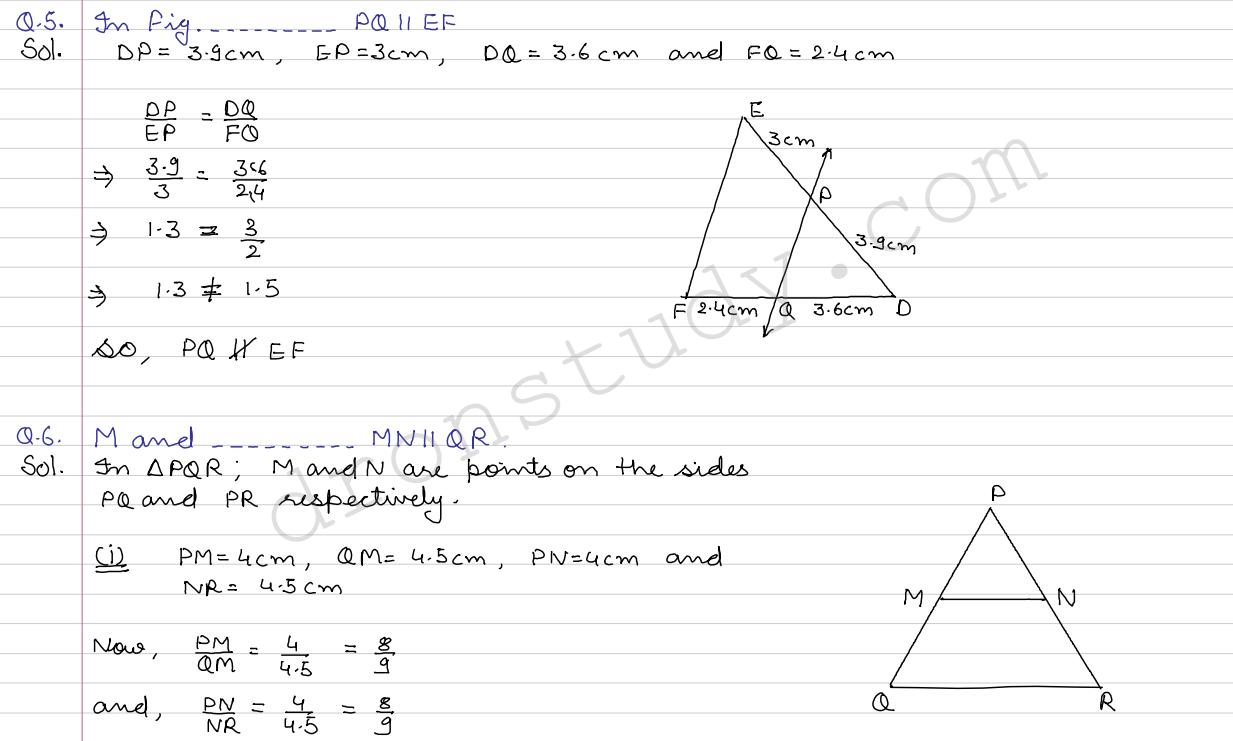 Q.5. In fig. ---------- PQ || EF
Sol. DP = 3.9cm, EP = 3cm, DQ = 3.6cm and FQ = 2.4cm
DP/EP = DQ/FQ
⇒ 3.9/3 = 3.6/2.4
⇒ 1.3 = 3/2
⇒ 1.3 ≠ 1.5
So, PQ ∦ EF
E
3cm
P
3.9cm
F 2.4cm Q 3.6cm D
Q.6. M and ---------- MN || QR.
Sol. In △PQR; M and N are points on the sides
PQ and PR respectively.
(i) PM = 4cm, QM = 4.5cm, PN = 4cm and
NR = 4.5cm
Now, PM/QM = 4/4.5 = 8/9
and, PN/NR = 4/4.5 = 8/9
P
M N
Q R
dronstudy.com